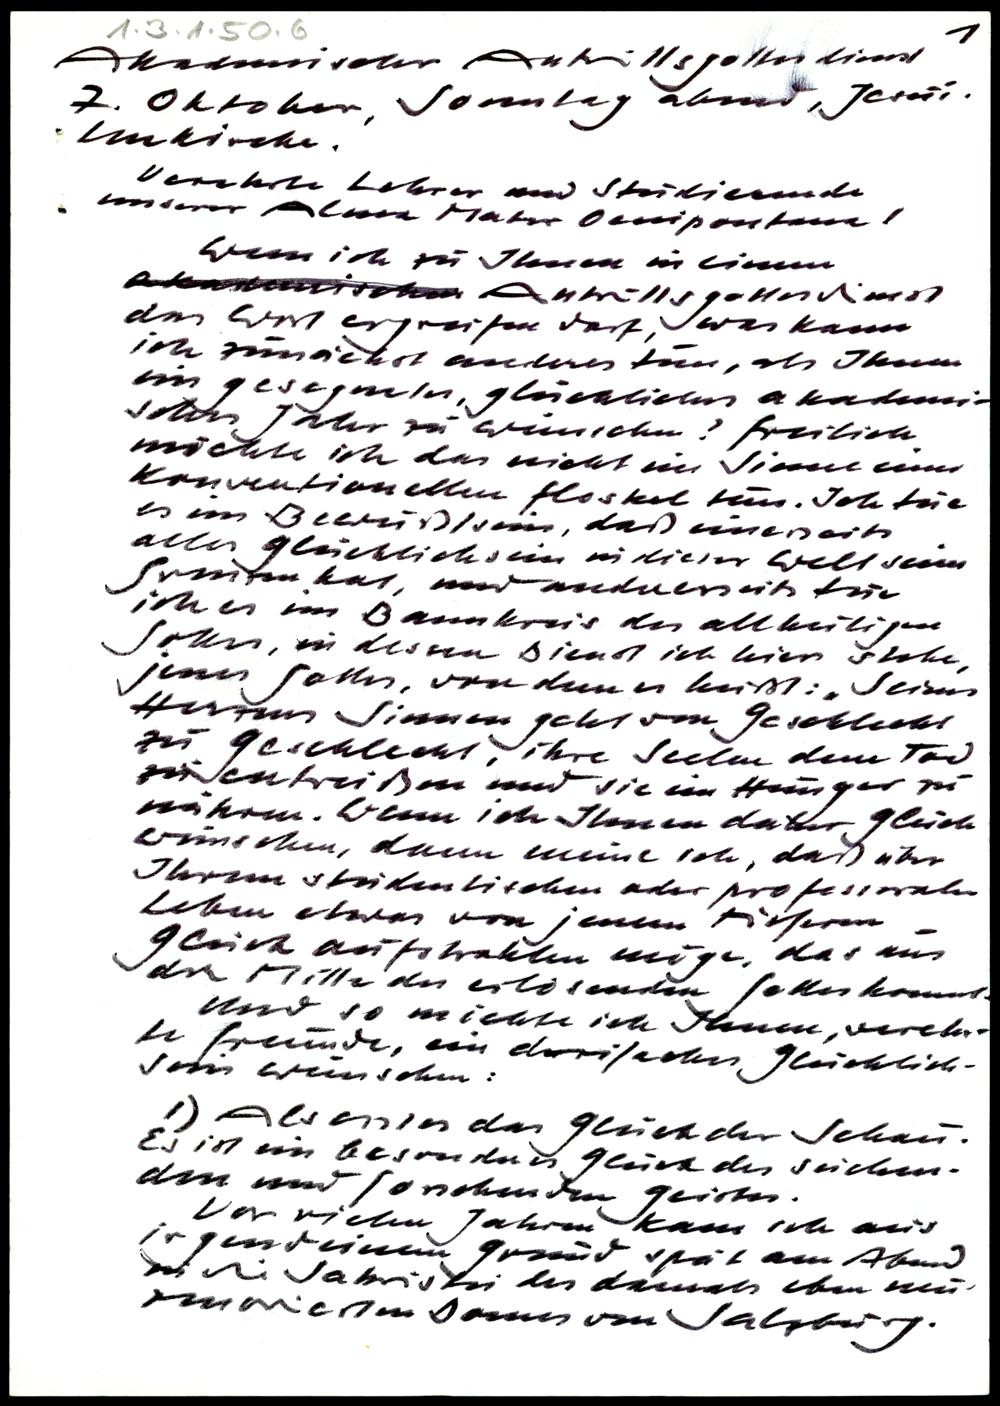 1.3.1.50.6
1
Akademischer Antrittsgottesdienst
7. Oktober, Sonntag abend, Jesui-
tenkirche.
Verehrte Lehrer und Studierende
unserer Alma Mater Oenipontana!
Wenn ich zu Ihnen in einem
akademischen Antrittsgottesdienst
das Wort ergreifen darf, was kann
ich zunächst anderes tun, als Ihnen
ein gesegnetes, glückliches akademi-
sches Jahr zu wünschen? Freilich
möchte ich das nicht im Sinne einer
konventionellen Floskel tun. Ich tue
es im Bewußtsein, daß einerseits
alles Glücklichsein in dieser Welt seine
Grenzen hat, und andererseits tue
ich es im Bannkreis des allheiligen
Gottes, in dessen Dienst ich hier stehe,
jenes Gottes, von dem es heißt: „Seines
Herzens Sinnen geht von Geschlecht
zu Geschlecht, ihre Seelen dem Tod
zu entreißen und sie im Hunger zu
nähren. Wenn ich Ihnen daher Glück
wünsche, dann meine ich, daß über
Ihrem studentischen oder professoralen
Leben etwas von jenem tieferen
Glück aufstrahlen möge, das aus
der Mitte des erlösenden Gottes kommt.
Und so möchte ich Ihnen, verehr-
te Freunde, ein dreifaches Glücklich-
sein wünschen:
1) Als erstes das Glück der Schau.
Es ist ein besonderes Glück des suchen-
den und forschenden Geistes.
Vor vielen Jahren kam ich aus
irgendeinem Grund spät am Abend
in die Sakristei des damals eben neu-
renovierten Domes von Salzburg.